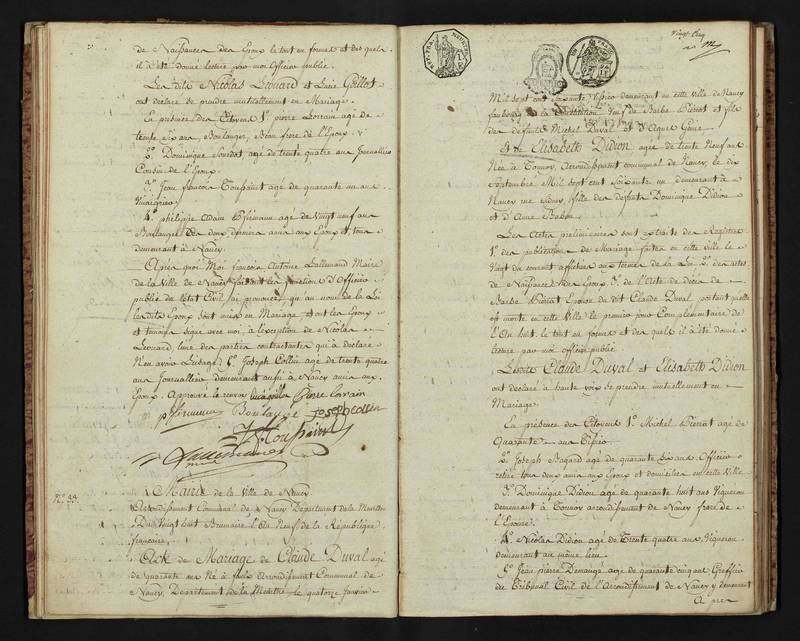 de Naissances des Epoux le tout en forme et des quels
il a été donné lecture par moi Officier public.
Les dits Nicolas Léonard et Lucie Gillot
ont déclaré de prendre mutuellement en Mariage.
En présence des Citoyens 1º pierre Lorrain agé de
trente six ans, Boulanger, Beau frere de l'Epoux
2º Dominique agé de trente quatre ans Journallier
Cousin de l'Epoux
3º Jean françois Toussaint agé de quarante un ans
Vinaigrier
4º philippe agé de Vingt neuf ans
Boulanger les deux derniers amis aux Epoux et tous
demeurant à Nancy
Après quoi Moi françois Antoine Lallemand Maire
de la Ville de Nancy faisant les fonctions d'Officier
public de l'état Civil j'ai prononcé qu'au nom de la Loi
les dits Epoux sont unis en Mariage et ont les Epoux
et témoins signé avec moi à l'exception de Nicolas
Léonard, l'une des parties contractantes qui a déclaré
N'en avoir l'usage 5º Joseph Collin agé de trente quatre
ans Journallier, demeurant aussi à Nancy ami aux
Epoux. Approuvé le renvoi Pierre Lorrain
joseph collin
Nº 22.
Mairie de la Ville de Nancy
Arrondissement Communal de Nancy Département de la Meurthe
Du Vingt huit Brumaire l'An Neuf de la République
française.
Acte de Mariage de Claude Duval agé
de quarante ans Né à Arrondissement Communal de
Nancy, Département de la Meurthe le quatorze Janvier
Vingt Cinq
Mil sept cent soixante demeurant en cette Ville de Nancy
faubourg de la Constitution Veuf de Barbe Pierrot et fils
des défunts Michel Duval et d'Agnès
et de Elisabeth Didion agée de trente Neuf ans
Née à Tomblay, Arrondissement communal de Nancy, le dix
Septembre Mil sept cent soixante un demeurant à
Nancy rue fille des défunts Dominique Didion
et d'Anne
Les Actes préliminaires sont extraits des Registres
1º des publications de Mariage faites en cette Ville le
Vingt du courant affichées aux termes de la Loi 2º des actes
de Naissances des Epoux 3º de l'Acte de décès de
Barbe Pierrot Epouse du dit Claude Duval portant qu'elle
est morte en cette Ville le premier jour Complémentaire de
l'An huit le tout en forme et des quels il a été donné
lecture par moi officier public
Les dits Claude Duval et Elisabeth Didion
ont déclaré à haute voix de prendre mutuellement en
Mariage
En présence des Citoyens 1º Michel Pierrot agé de
Quarante ans
2º Joseph Bagard agé de quarante six ans Officier
retiré tous deux amis aux Epoux et domiciliés en cette Ville
3º Dominique Didion agé de quarante huit ans Vigneron
demeurant à arrondissement de Nancy frere de
l'Epouse
4º Nicolas Didion agé de Trente quatre ans Vigneron
demeurant au même lieu
5º Jean pierre Demangé agé de quarante cinq ans Greffier
du Tribunal Civil de l'Arrondissement de Nancy y demeurant